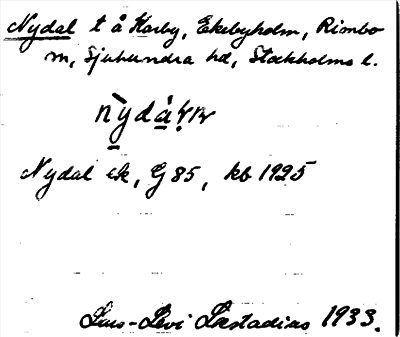 Nydal t å Karby, Ekebyholm, Rimbo
m, Sjuhundra hd, Stockholms l.
Nydal ek, G 85, kb 1925
Lars-Levi Læstadius 1933.